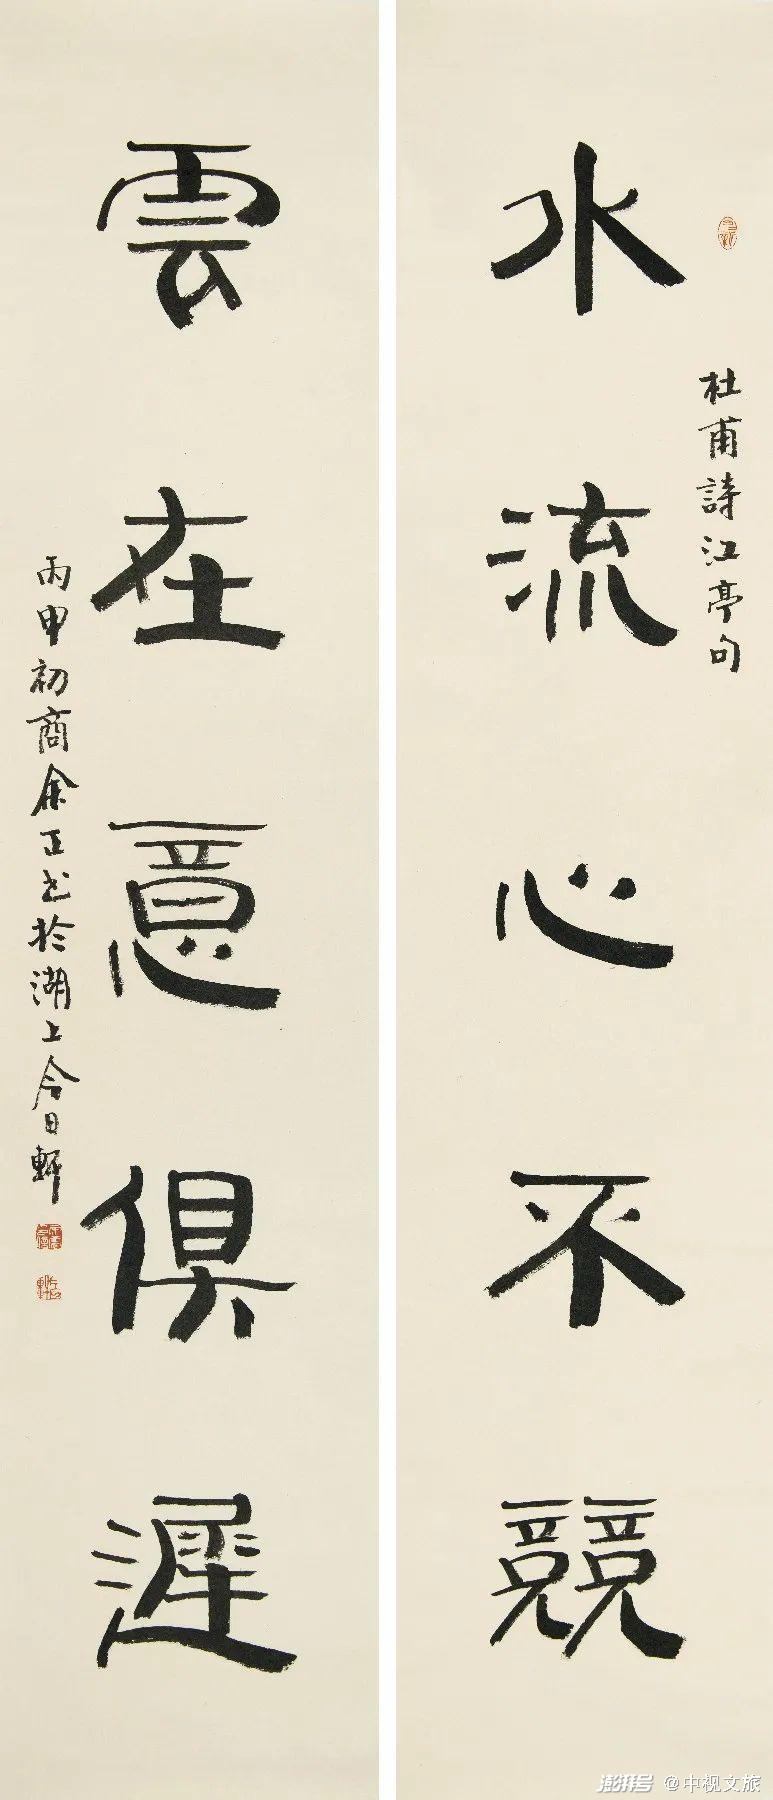 水流心不競
杜甫詩江亭句
雲在意俱遲
丙申初商余正書於湖上今日軒
澎湃号 @中视文旅